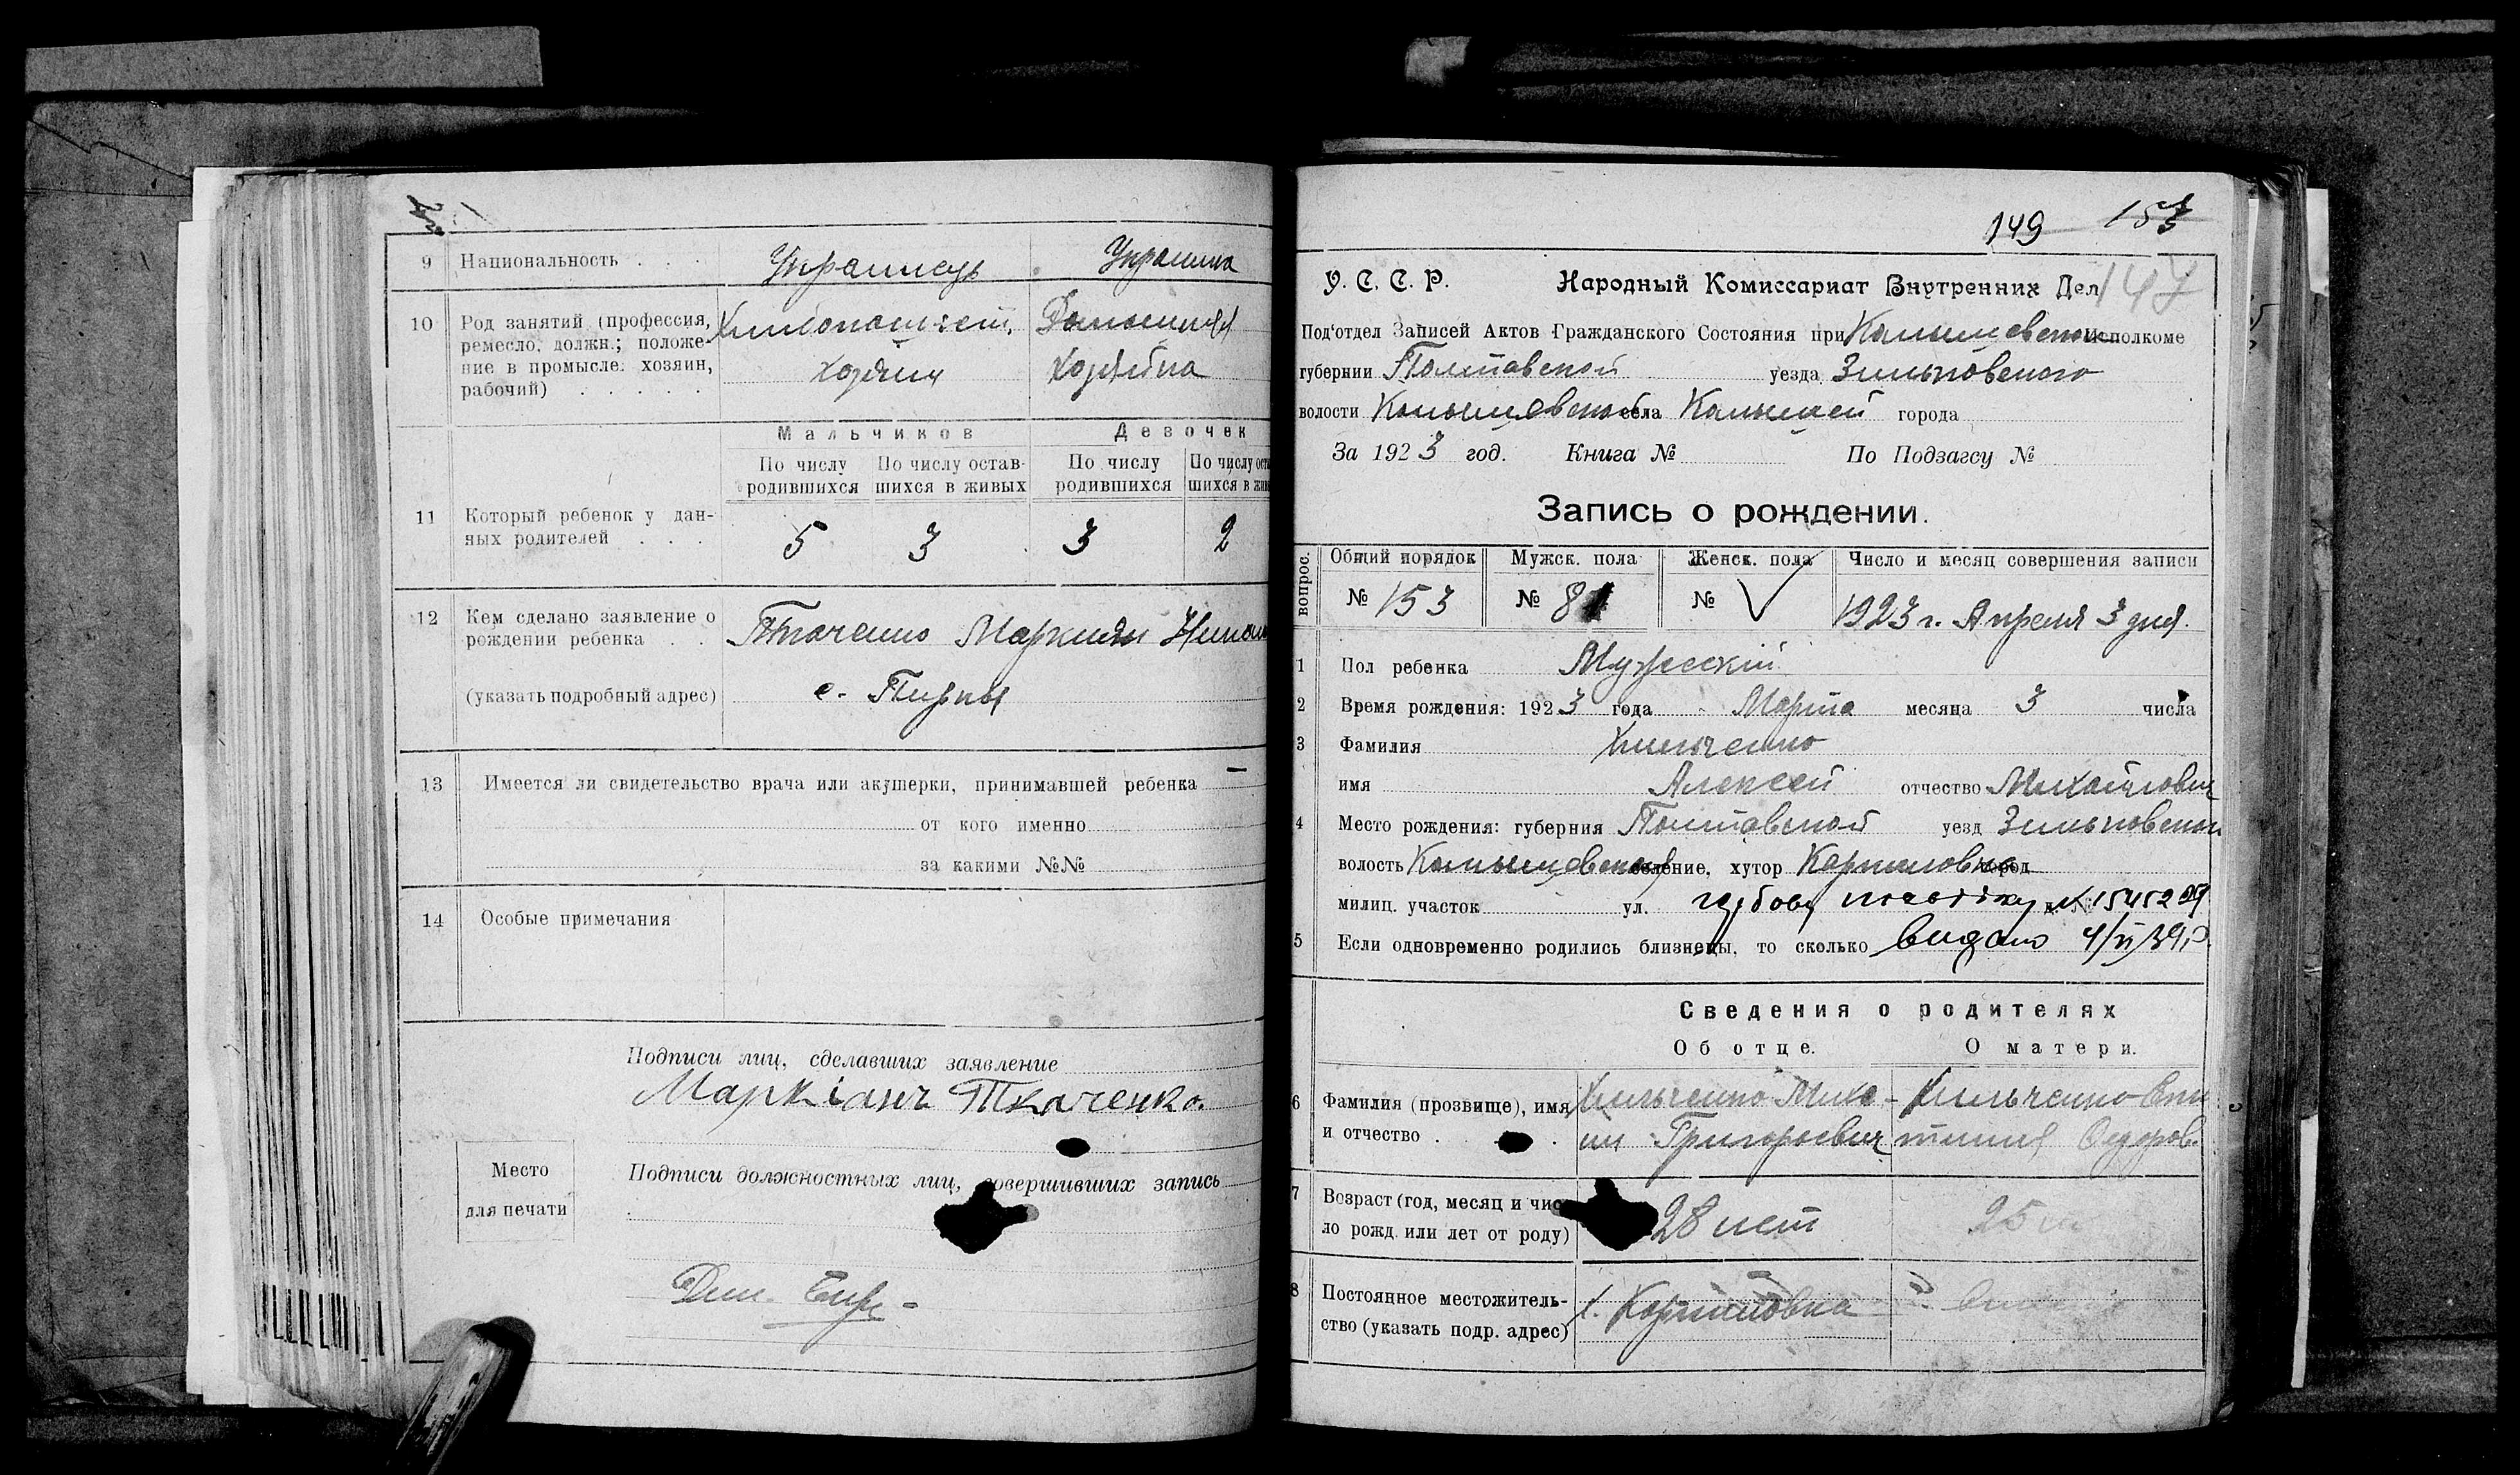 9 Национальность . . . Украинець Украинка
10 Род занятий (профессия, Хлебопашест. Домашняя
ремесло, должн.; положе-
ние в промысле: хозяин, хозяин Хозяйка
рабочий) . . . . .
Мальчиков Девочек
По числу По числу остав- По числу По числу оста
родившихся шихся в живых родившихся шихся в жив
11 Который ребенок у дан-
ных родителей . . . 5 3 3 2
12 Кем сделано заявление о
рождении ребенка . . Ткаченко Маркиян
(указать подробный адрес) с.
13 Имеется ли свидетельство врача или акушерки, принимавшей ребенка —
от кого именно
за какими №№
14 Особые примечания
Подписи лиц, сделавших заявление
Маркіанъ Ткаченко.
Подписи должностных лиц, совершивших запись
Место
для печати
149 153
147
У. С. С. Р. Народный Комиссариат Внутренних Дел
Под'отдел Записей Актов Гражданского Состояния при исполкоме
губернии Полтавской уезда Зиньковского
волости села города
За 1923 год. Книга № По Подзагсу №
Запись о рождении.
вопрос. Общий порядок Мужск. пола Женск. пола Число и месяц совершения записи
№ 153 № 81 № V 1923 г. Апреля 3 дня.
1 Пол ребенка Мужеский
2 Время рождения: 1923 года Марта месяца 3 числа
3 Фамилия Хильченко
имя Алексей отчество Михайлович
4 Место рождения: губерния Полтавской уезд Зиньковской
волость селение, хутор город
милиц. участок ул. № 154529
5 Если одновременно родились близнецы, то сколько видано
Сведения о родителях
Об отце. О матери.
6 Фамилия (прозвище), имя Хильченко Миха- Хильченко
и отчество . . . ил Григорьевич Федоров.
7 Возраст (год, месяц и чис-
ло рожд. или лет от роду) 28 лет 25 л
8 Постоянное местожитель-
ство (указать подр. адрес)